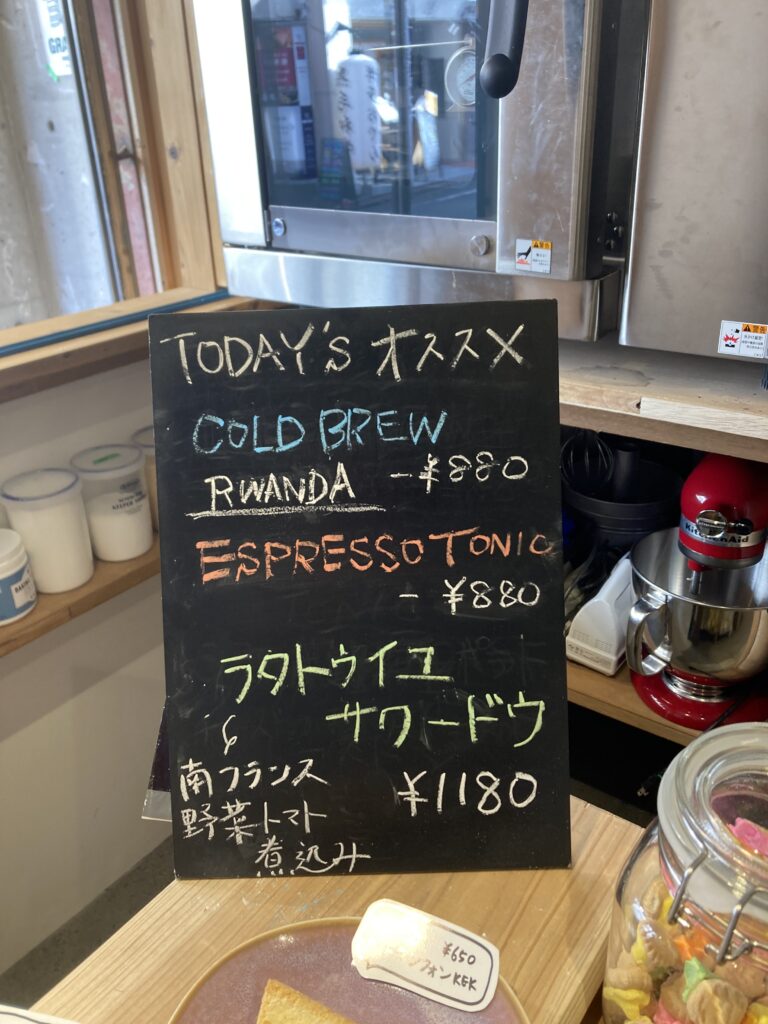 TODAY'S オススメ
COLD BREW
RWANDA -¥880
ESPRESSO TONIC
- ¥880
ラタトゥイユ
サワードウ
南フランス
¥1180
野菜トマト
煮込み
¥650
フォンKEK
KitchenAid
警告
警告